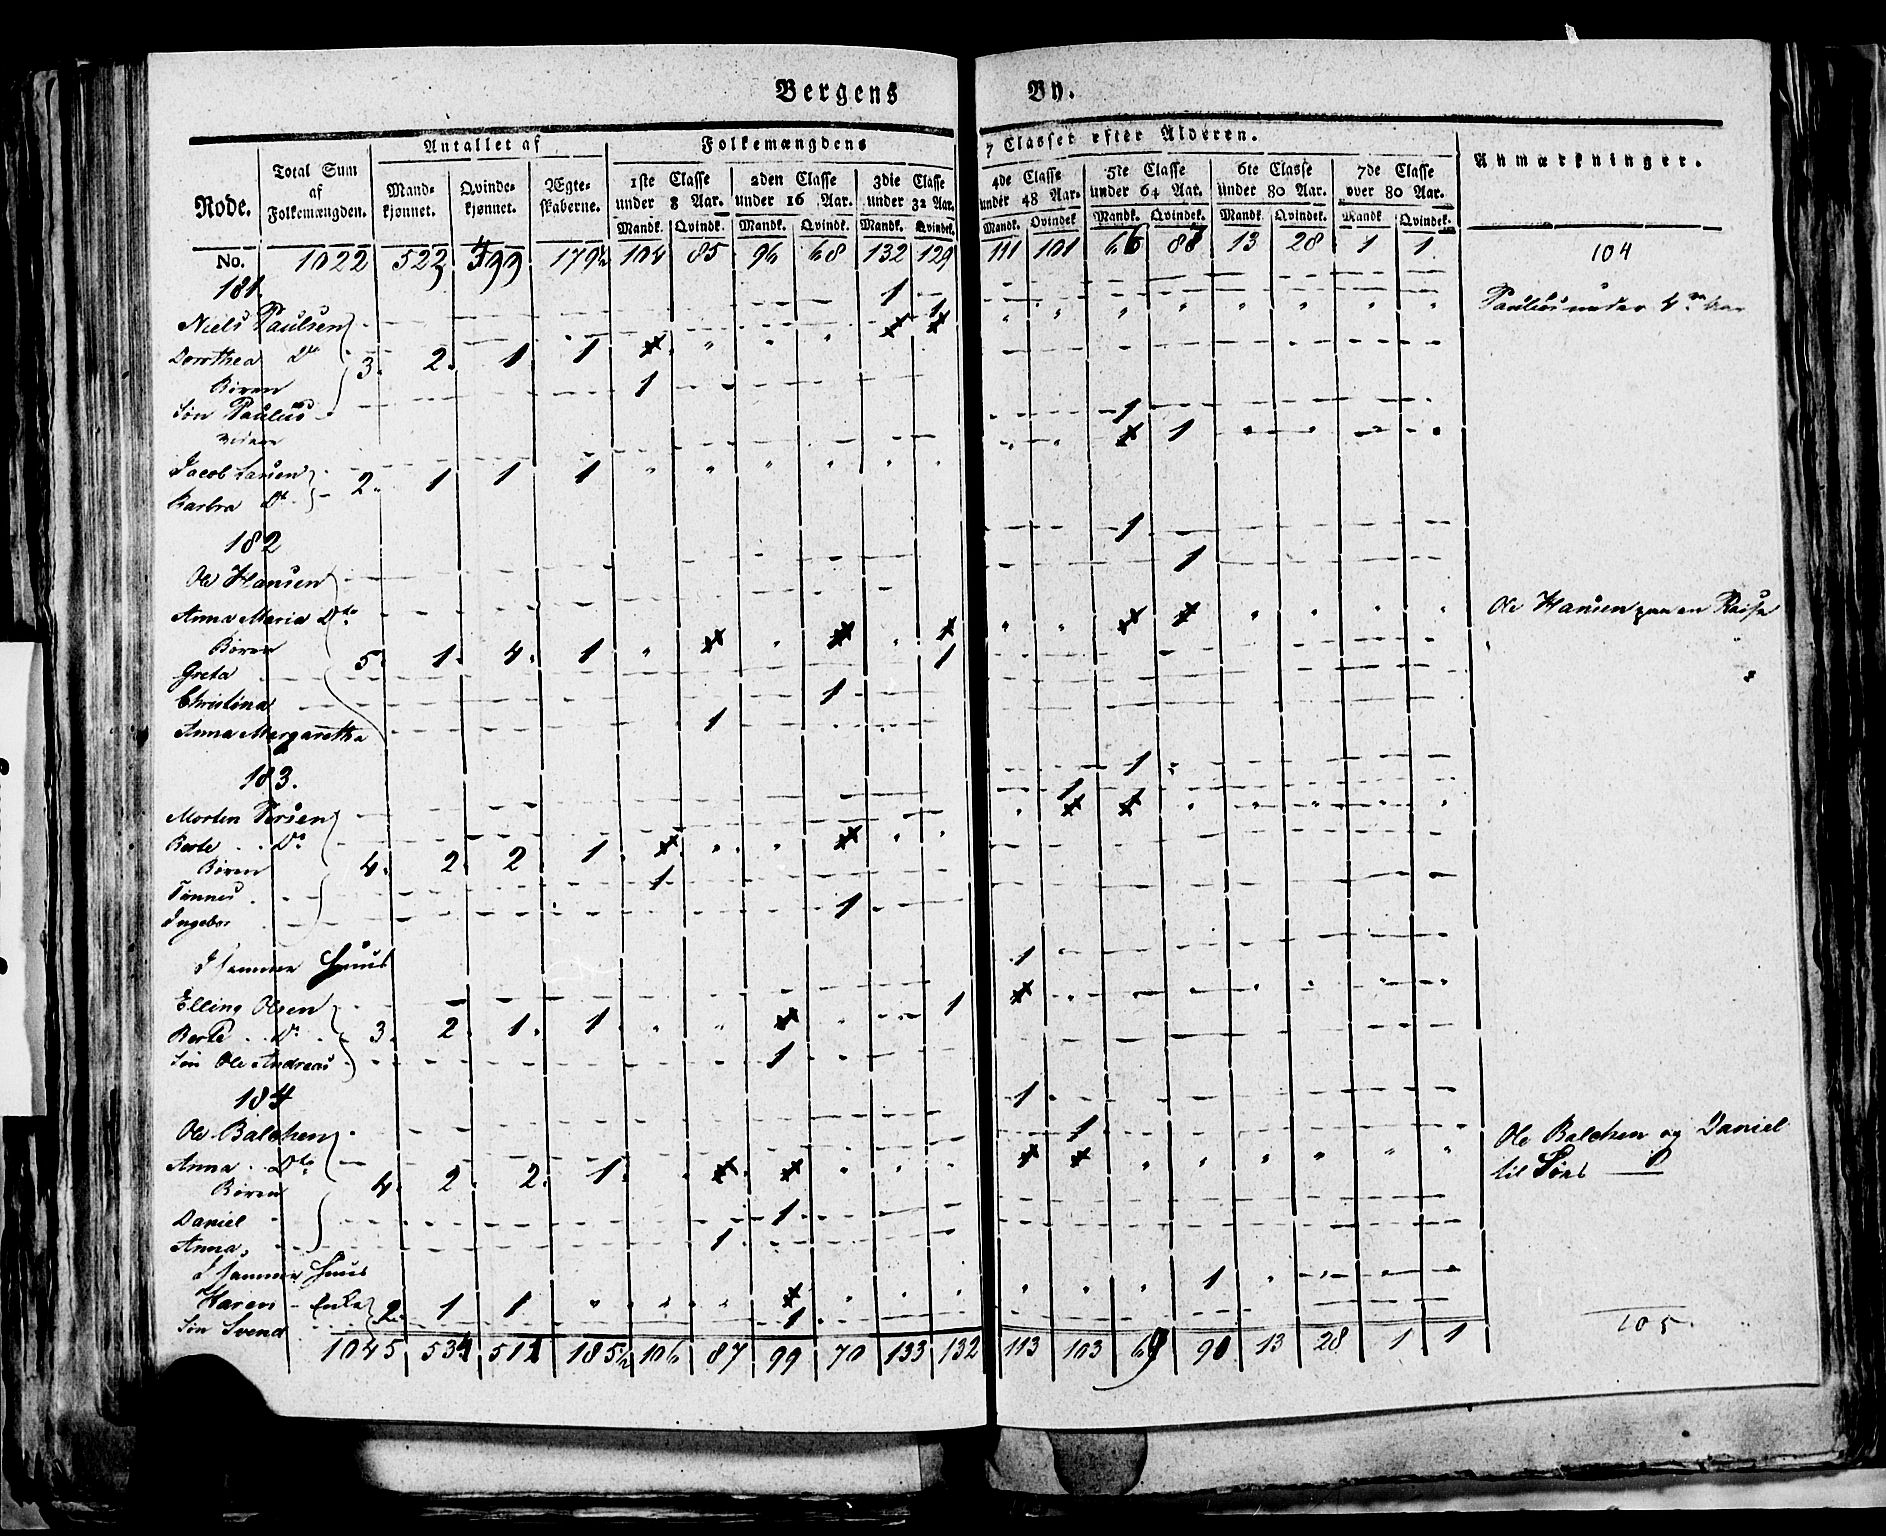 Bergens By.
Rode. Total Sum af Folkemængden. Antallet af Mandkjønnet. Qvindekjønnet. Ægteskaberne. Folkemængdens 7 Classer efter Alderen. Anmærkninger.
1ste Classe under 8 Aar. 2den Classe under 16 Aar. 3die Classe under 32 Aar. 4de Classe under 48 Aar. 5te Classe under 64 Aar. 6te Classe under 80 Aar. 7de Classe over 80 Aar.
Mandk. Qvindk. Mandk. Qvindk. Mandk. Qvindek. Mandk. Qvindek Mandk. Qvindek. Mandk. Qvindek. Mandk Qvindek.
No. 1022 522 499 179½ 104 85 96 68 132 129 111 101 66 87 13 28 1 1 104
181.
Niels Paulsen 1
Dorothea Do 3. 2. 1 1 1
Børn
Søn Paulus 1
Jacob Larsen 2. 1 1 1 1
Barbra Do 1
182
Ole Hansen 1 Ole Hansen paa en Raise
Anna Maria Dto 1
Børn 5. 1. 4. 1
Greta 1
Christina 1
Anna Margaretha 1
183.
Morten Iversen 1
Berte Do 1
Børn 4. 2. 2 1.
Tønnes 1
Ingebor 1
Elling Olsen 1
Berte Do 3. 2. 1. 1 1
Søn Ole Andreas 1
184
Ole Balchen 1 Ole Balchen og Daniel
Anna Dto 1 til Søes
Børn 4. 2. 2. 1.
Daniel 1
Anna 1
Karen Enke 2. 1 1 1
Søn Svend 1
1045 534 512 185½ 106 87 99 70 133 132 113 103 69 90 13 28 1 1 105.